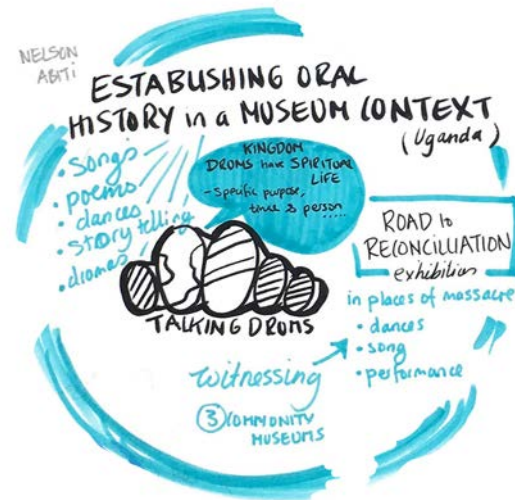 NELSON
ABITI
ESTABUSHING ORAL
HISTORY in a MUSEUM CONTEXT
(Uganda)
• songs
• poems
• dances
• story telling
• dramas
KINGDOM
DRUMS have SPIRITUAL
LIFE
- Specific purpose,
time & person
.....
TALKING DRUMS
ROAD to
RECONCILIATION
exhibition
in places of massacre
• dances
• song
• performance
witnessing
③ COMMUNITY
MUSEUMS